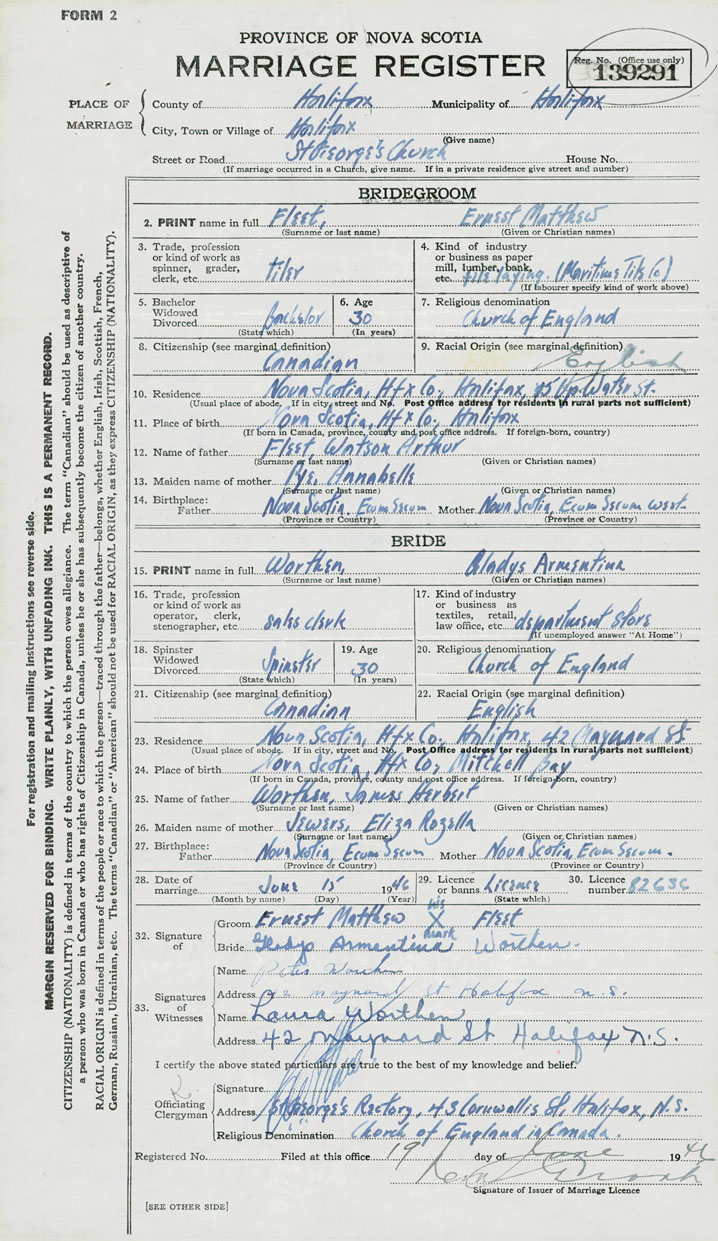 FORM 2
PROVINCE OF NOVA SCOTIA
MARRIAGE REGISTER
Reg. No. (Office use only)
139291
PLACE OF MARRIAGE
County of Halifax Municipality of Halifax
City, Town or Village of Halifax
(Give name)
Street or Road St George's Church House No.
(If marriage occurred in a Church, give name. If in a private residence give street and number)
BRIDEGROOM
2. PRINT name in full Fleet, Ernest Matthew
(Surname or last name) (Given or Christian names)
3. Trade, profession or kind of work as spinner, grader, clerk, etc. tiler
4. Kind of industry or business as paper mill, lumber, bank, etc. tile laying. (Maritime Tile Co)
(If labourer specify kind of work above)
5. Bachelor Widowed Divorced Bachelor
(State which)
6. Age 30
(In years)
7. Religious denomination
Church of England
8. Citizenship (see marginal definition)
Canadian
9. Racial Origin (see marginal definition)
English
10. Residence Nova Scotia, Hfx Co., Halifax, Up Water St.
(Usual place of abode. If in city, street and No. Post Office address for residents in rural parts not sufficient)
11. Place of birth Nova Scotia, Hfx Co. Halifax
(If born in Canada, province, county and post office address. If foreign-born, country)
12. Name of father Fleet, Watson Arthur
(Surname or last name) (Given or Christian names)
13. Maiden name of mother Pye, Annabelle
(Surname or last name) (Given or Christian names)
14. Birthplace: Father Nova Scotia, Ecum Secum Mother Nova Scotia, Ecum Secum West
(Province or Country) (Province or Country)
BRIDE
15. PRINT name in full Worthen, Gladys Armentina
(Surname or last name) (Given or Christian names)
16. Trade, profession or kind of work as operator, clerk, stenographer, etc sales clerk
17. Kind of industry or business as textiles, retail, law office, etc. department store
(If unemployed answer "At Home")
18. Spinster Widowed Divorced Spinster
(State which)
19. Age 30
(In years)
20. Religious denomination
Church of England
21. Citizenship (see marginal definition)
Canadian
22. Racial Origin (see marginal definition)
English
23. Residence Nova Scotia, Hfx Co., Halifax, 42 Maynard St
(Usual place of abode. If in city, street and No. Post Office address for residents in rural parts not sufficient)
24. Place of birth Nova Scotia, Hfx Co, Mitchell Bay
(If born in Canada, province, county and post office address. If foreign-born, country)
25. Name of father Worthen, James Herbert
(Surname or last name) (Given or Christian names)
26. Maiden name of mother Jewers, Eliza Rozella
(Surname or last name) (Given or Christian names)
27. Birthplace: Father Nova Scotia, Ecum Secum Mother Nova Scotia, Ecum Secum.
(Province or Country) (Province or Country)
28. Date of marriage June 15 1946
(Month by name) (Day) (Year)
29. Licence or banns Licence
(State which)
30. Licence number 82636
32. Signature of
Groom Ernest Matthew his X mark Fleet
Bride Gladys Armentina Worthen.
33. Signatures of Witnesses
Name Worthen
Address 42 Maynard St Halifax N.S.
Name Laura Worthen
Address 42 Maynard St Halifax N.S.
I certify the above stated particulars are true to the best of my knowledge and belief.
Officiating Clergyman
Signature
Address St George's Rectory, 43 Cornwallis St, Halifax, N.S.
Religious Denomination Church of England in Canada.
Registered No. Filed at this office 19 day of June 1946
Signature of Issuer of Marriage Licence
[SEE OTHER SIDE]
For registration and mailing instructions see reverse side.
MARGIN RESERVED FOR BINDING. WRITE PLAINLY, WITH UNFADING INK. THIS IS A PERMANENT RECORD.
CITIZENSHIP (NATIONALITY) is defined in terms of the country to which the person owes allegiance. The term "Canadian" should be used as descriptive of
a person who was born in Canada or who has rights of Citizenship in Canada, unless he or she has subsequently become the citizen of another country.
RACIAL ORIGIN is defined in terms of the people or race to which the person—traced through the father—belongs, whether English, Irish, Scottish, French,
German, Russian, Ukrainian, etc. The terms "Canadian" or "American" should not be used for RACIAL ORIGIN, as they express CITIZENSHIP (NATIONALITY).